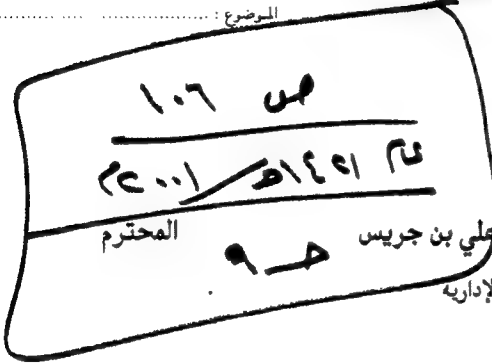 الموضوع : ........................................
ص ١٠٦
عام ١٤٢١هـ/٢٠٠١م
علي بن جريس المحترم
حـ ٩
الإدارية